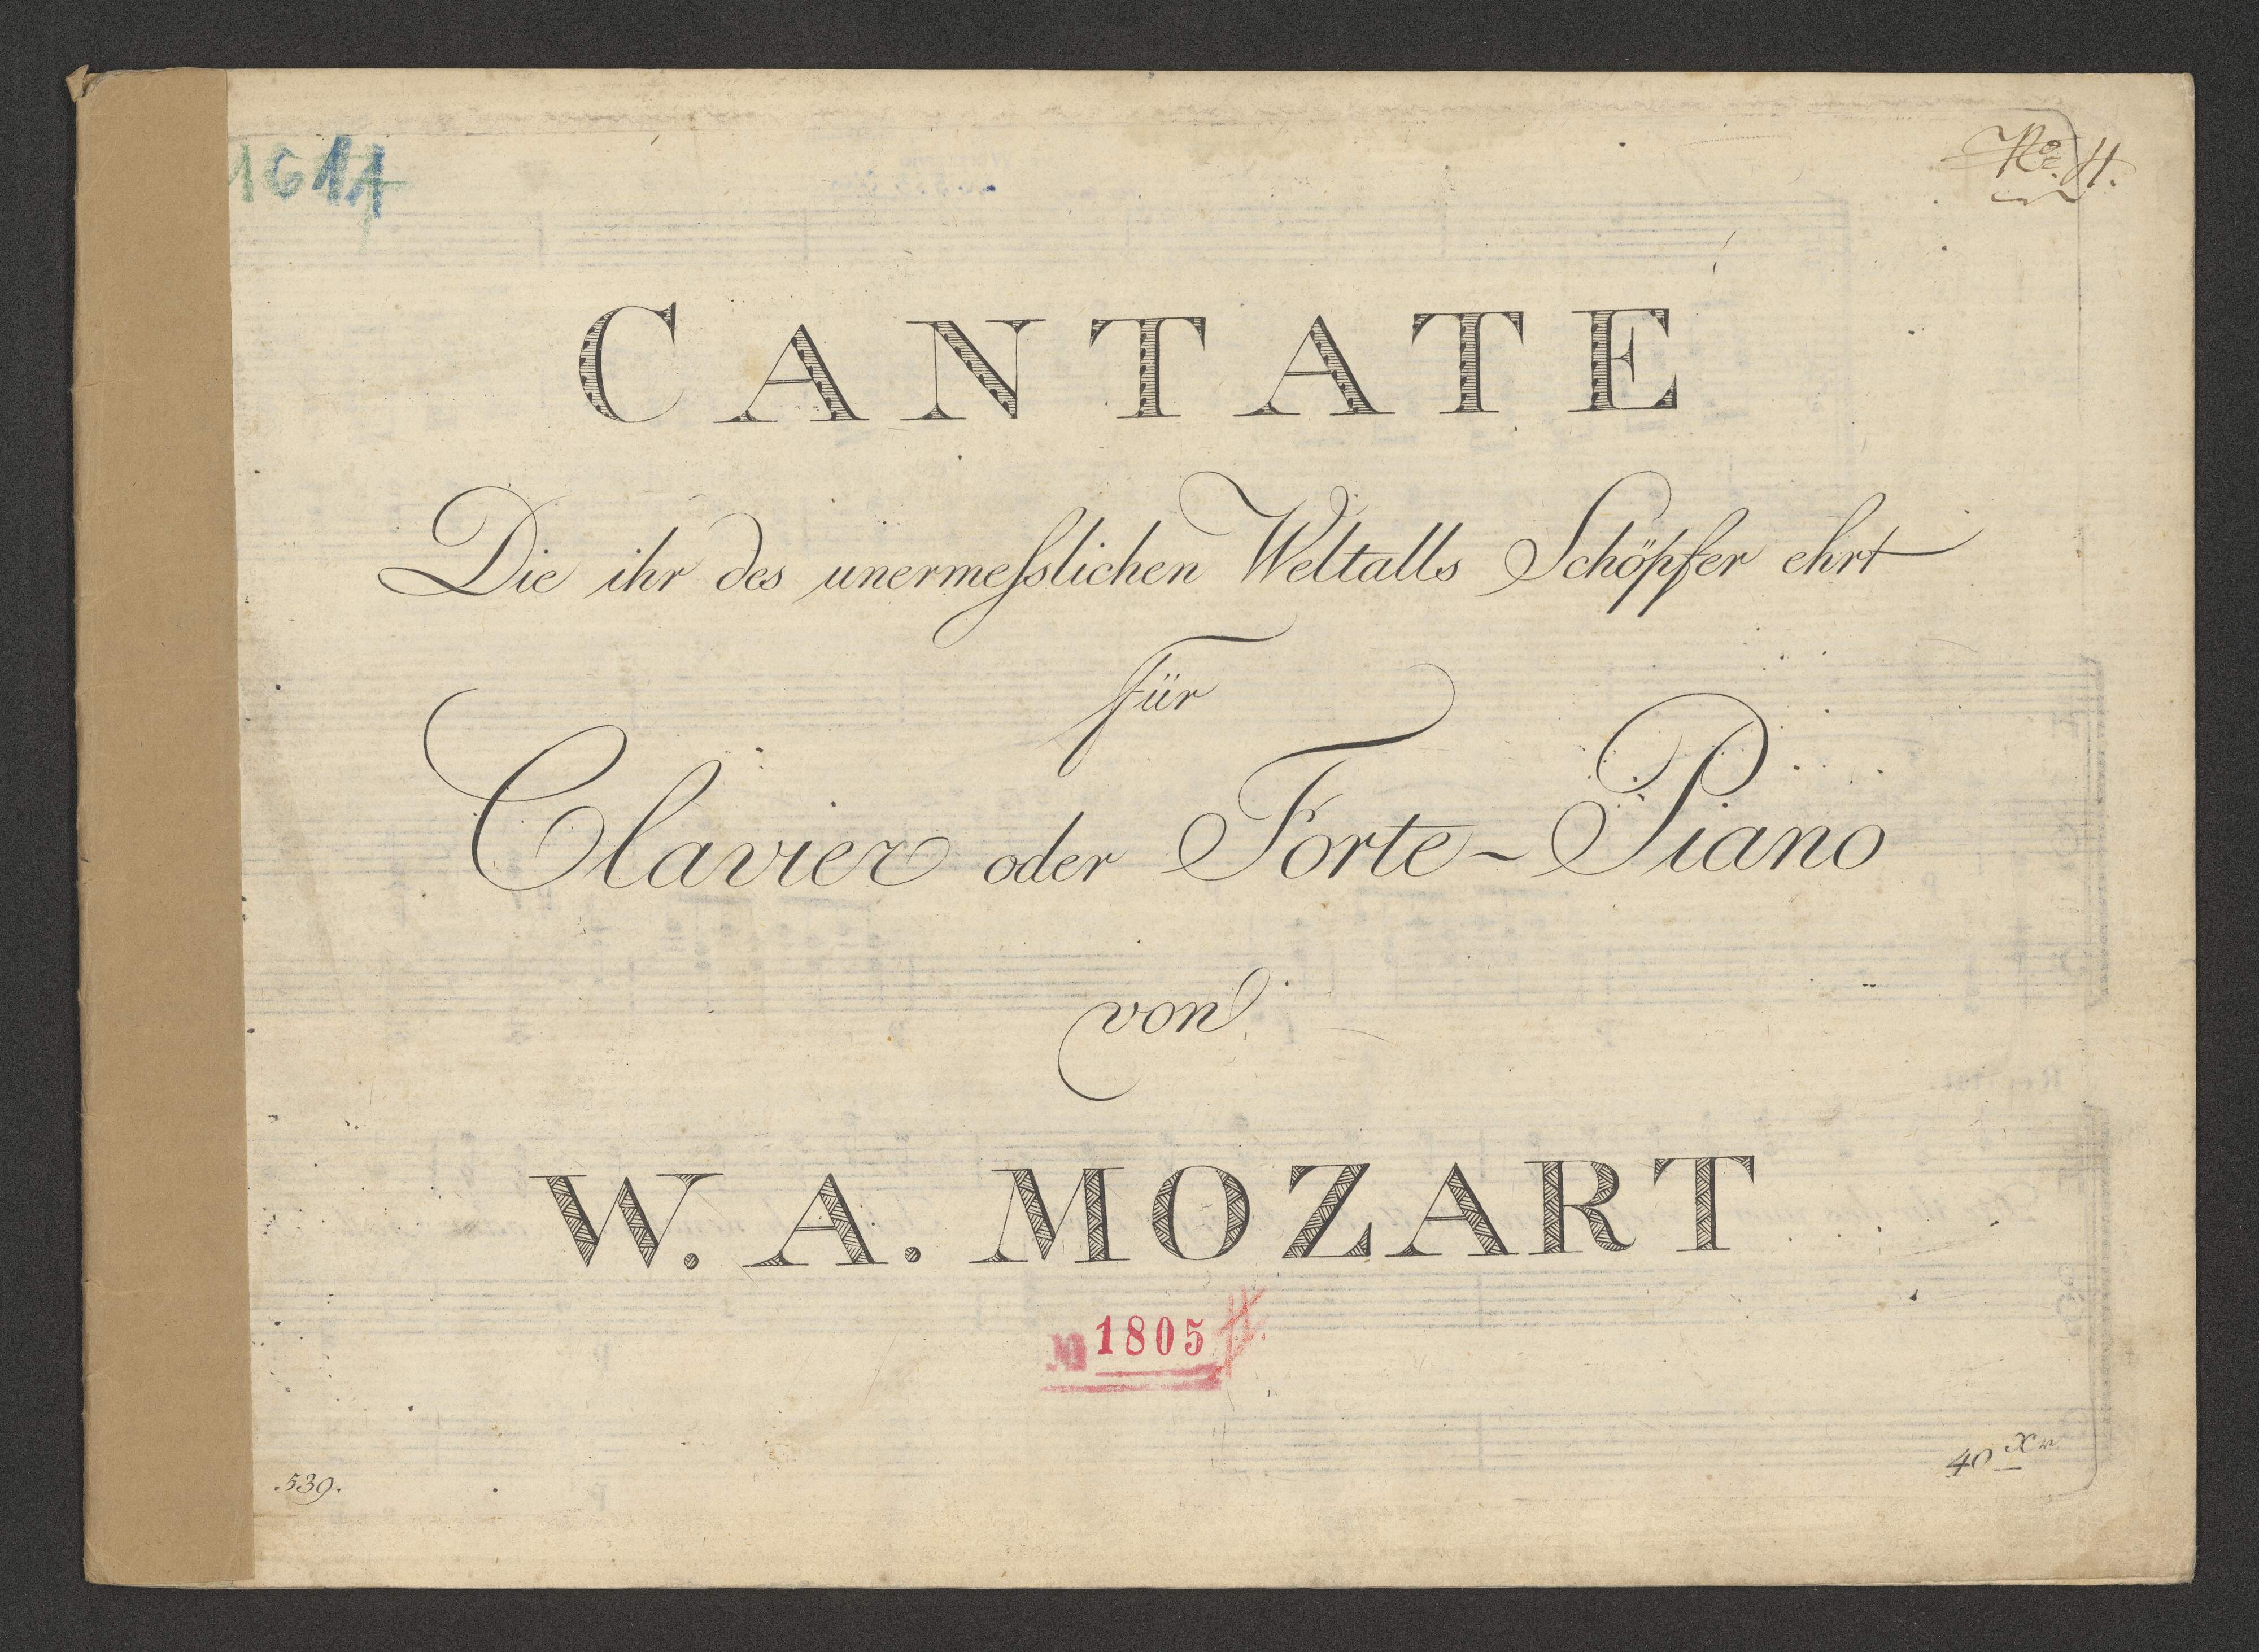 1611
No. 4.
CANTATE
Die ihr des unermeſslichen Weltalls Schöpfer ehrt
für
Clavier oder Forte-Piano
von
W. A. MOZART
1805
539.
40 Xr